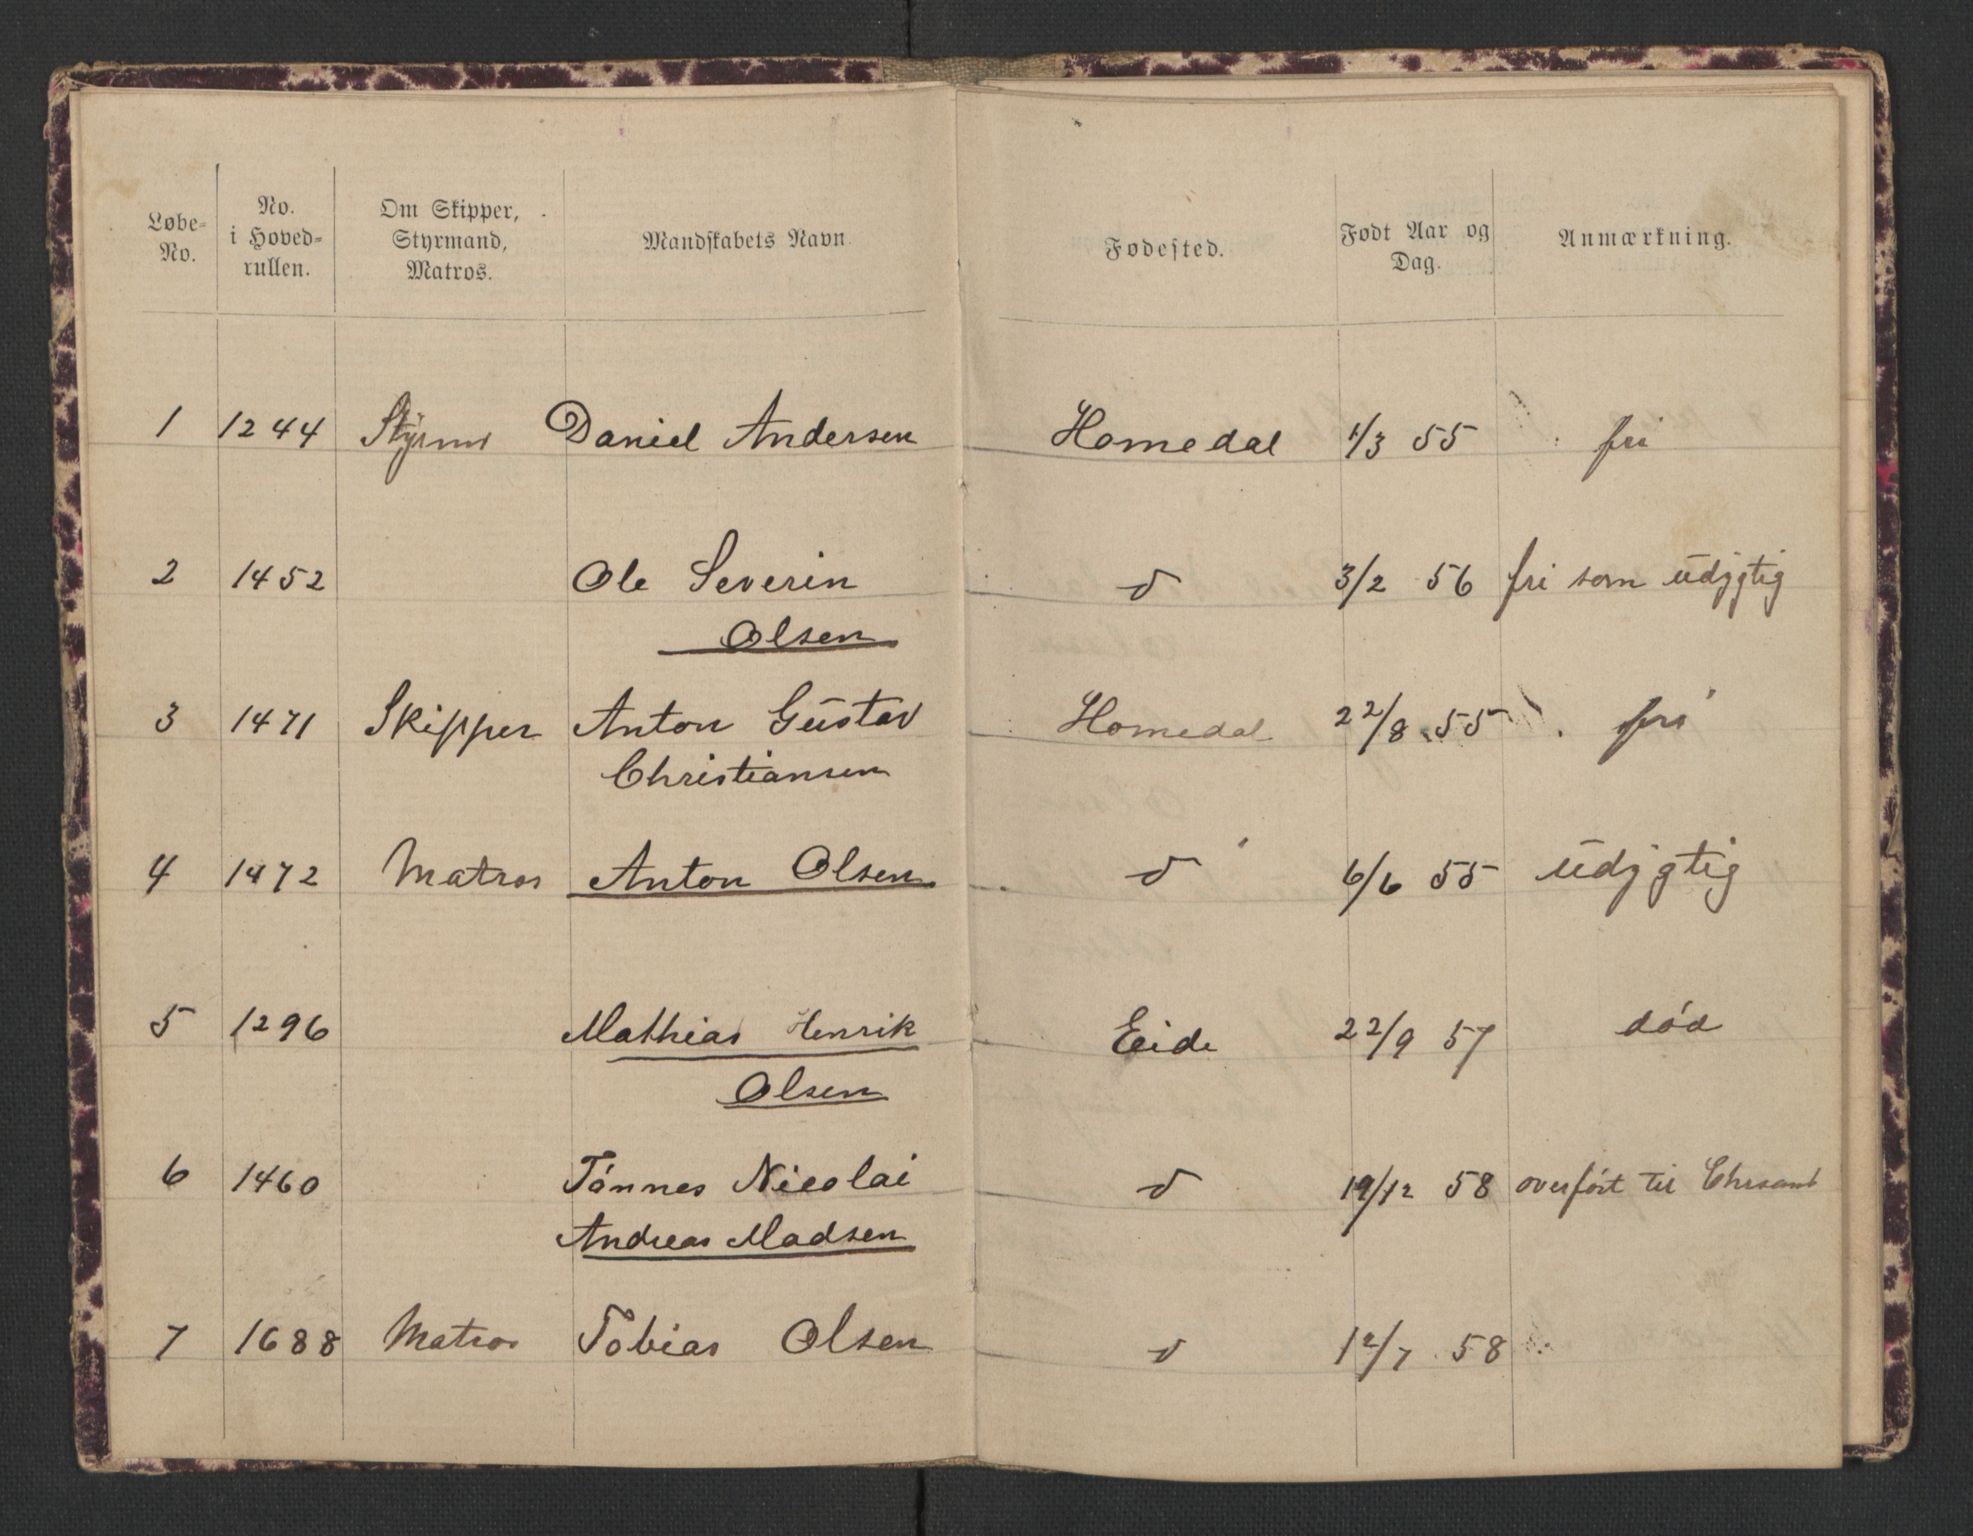 Løbe-No. No. i Hoved-rullen. Om Skipper, Styrmand, Matros. Mandskabets Navn. Fødested. Født Aar og Dag. Anmærkning.
1 1244 Styrmd Daniel Andersen Homedal 1/3 55 fri
2 1452 Ole Severin d 3/2 56 fri som udygtig
Olsen
3 1471 Skipper Anton Gustav Homedal 22/8 55 fri
Christiansen
4 1472 Matros Anton Olsen d 6/6 55 udygtig
5 1296 Mathias Henrik Eide 22/9 57 død
Olsen
6 1460 Tónnes Nicolai d 19/12 58 overfört til Chrsand
Andreas Madsen
7 1688 Matros Tobias Olsen d 12/7 58